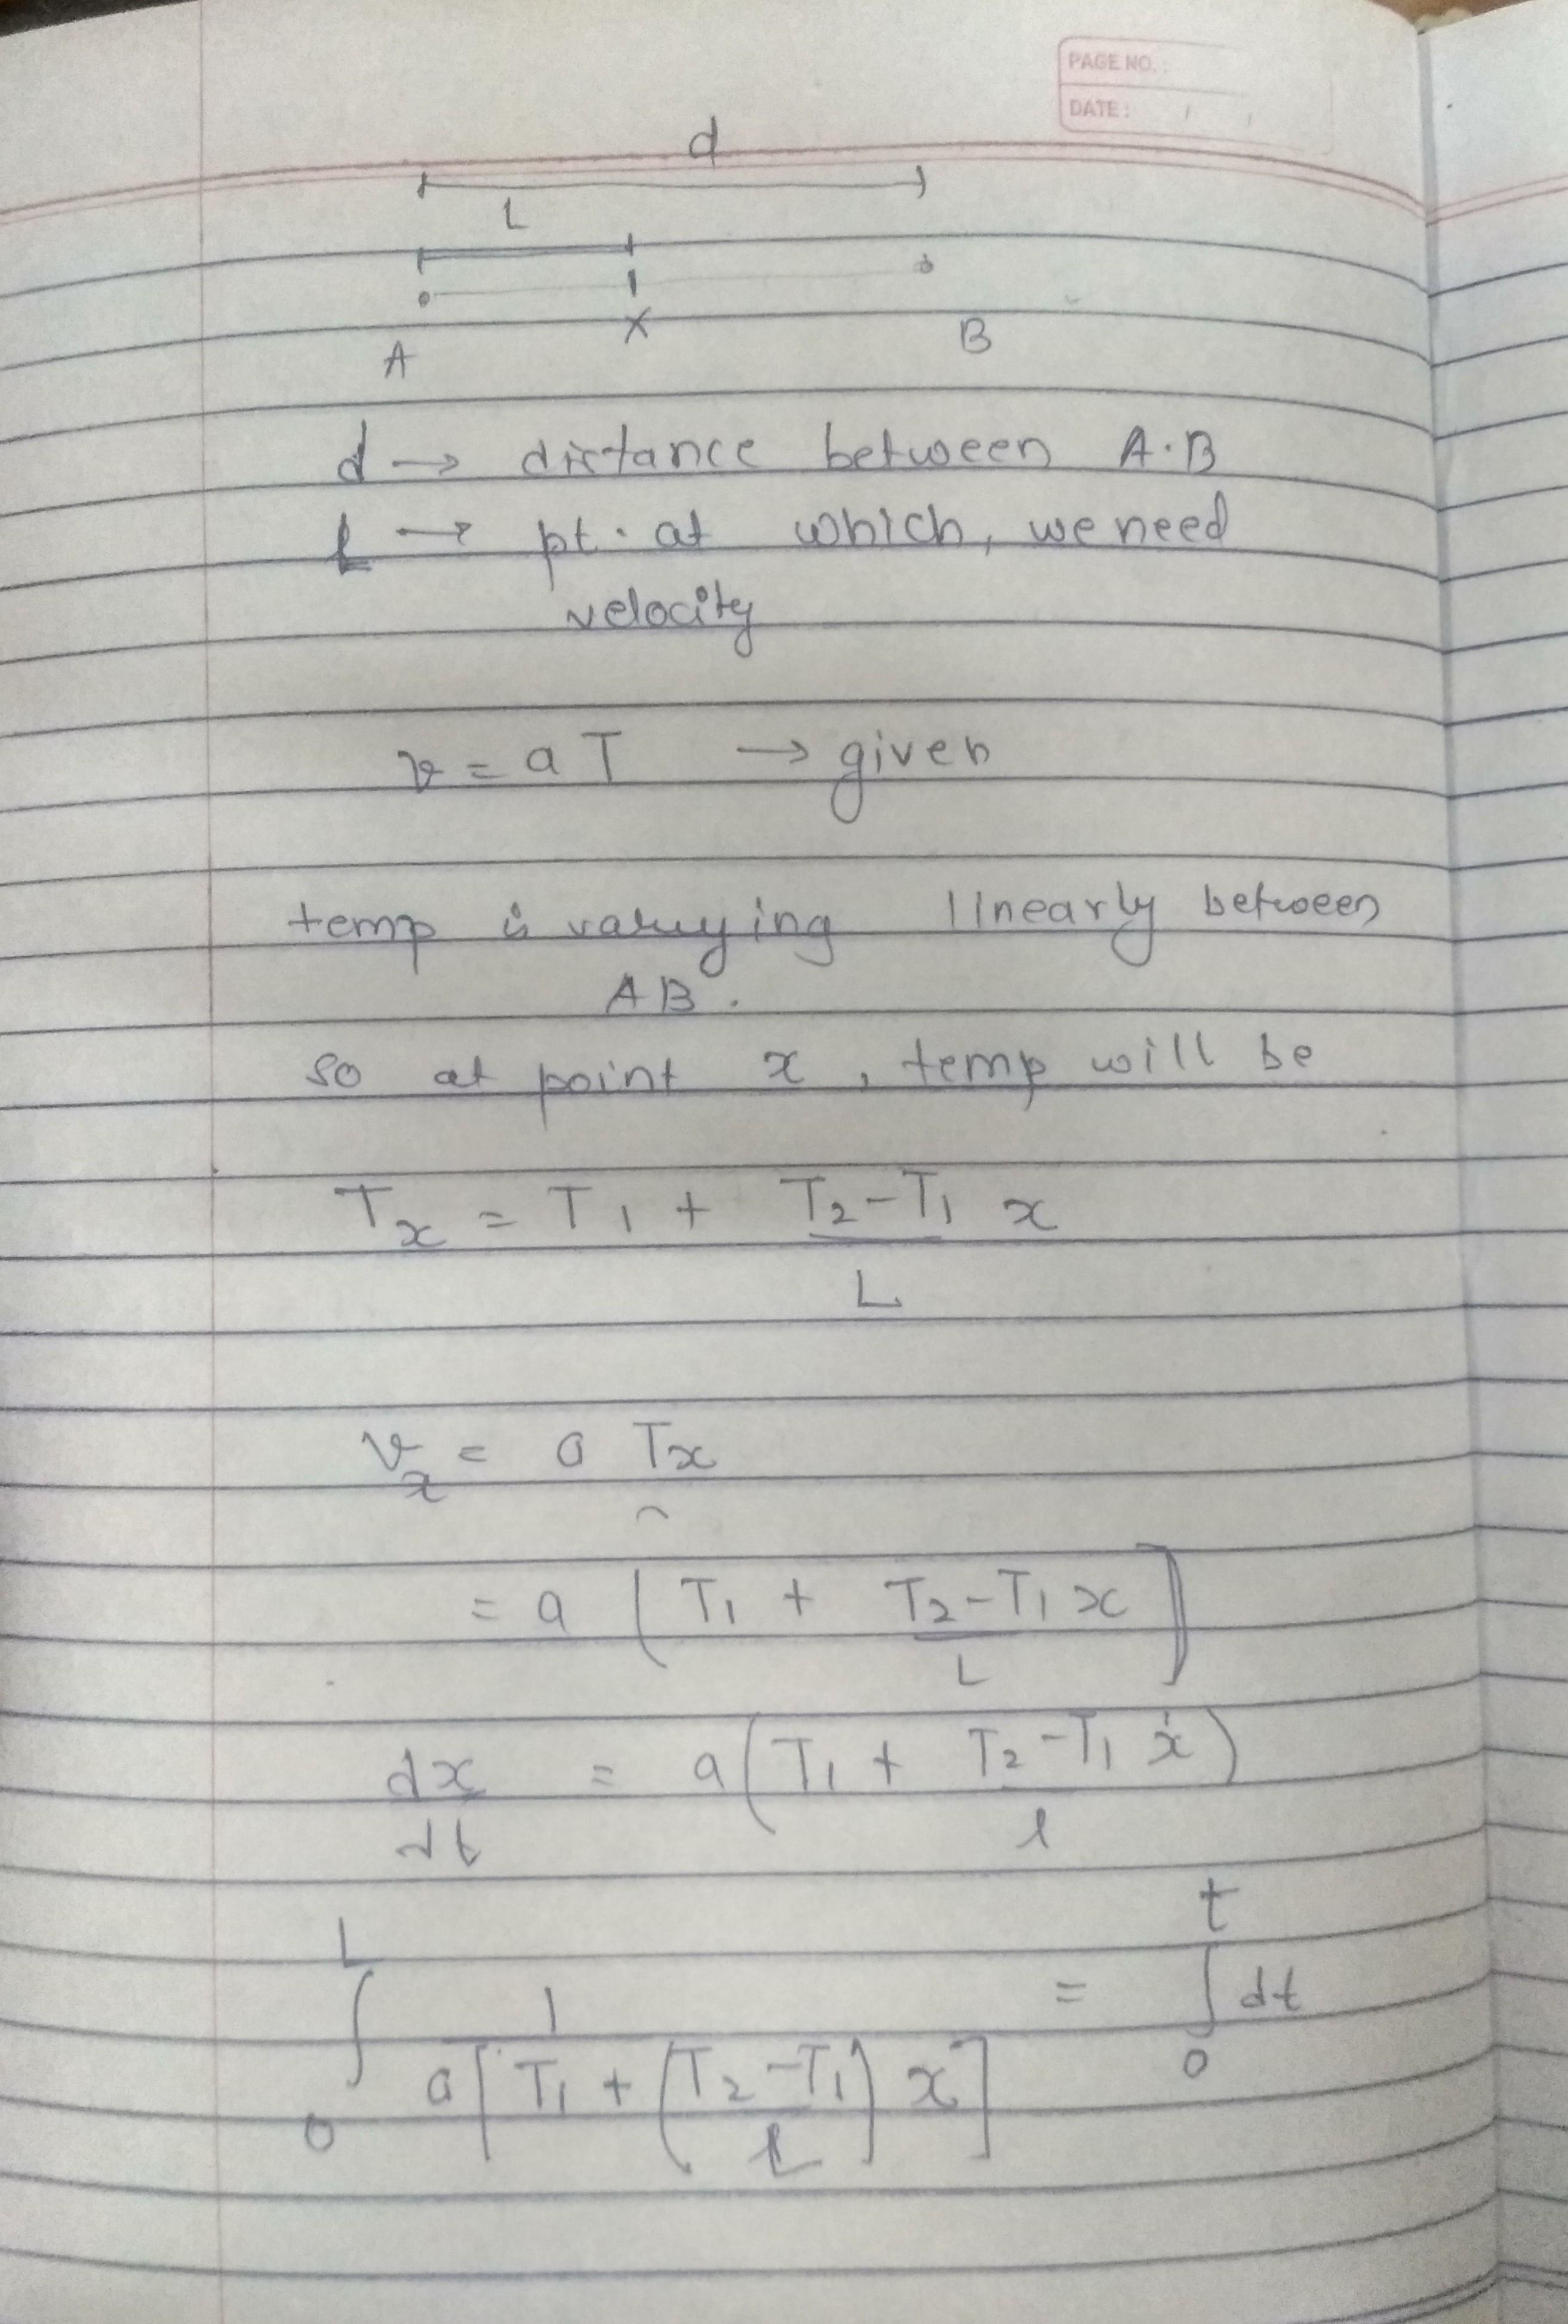 PAGE NO. :
DATE : / /
d
L
A x B
d → distance between A·B
L → pt. at which, we need
velocity
v = a T → given
temp is varying linearly between
AB.
so at point x, temp will be
Tx = T1 + T2-T1 x
L
vx = a Tx
= a [T1 + T2-T1 x]
L
dx = a(T1 + T2-T1 x)
dt l
L t
∫ 1 = ∫ dt
0 a[T1 + (T2-T1) x] 0
L